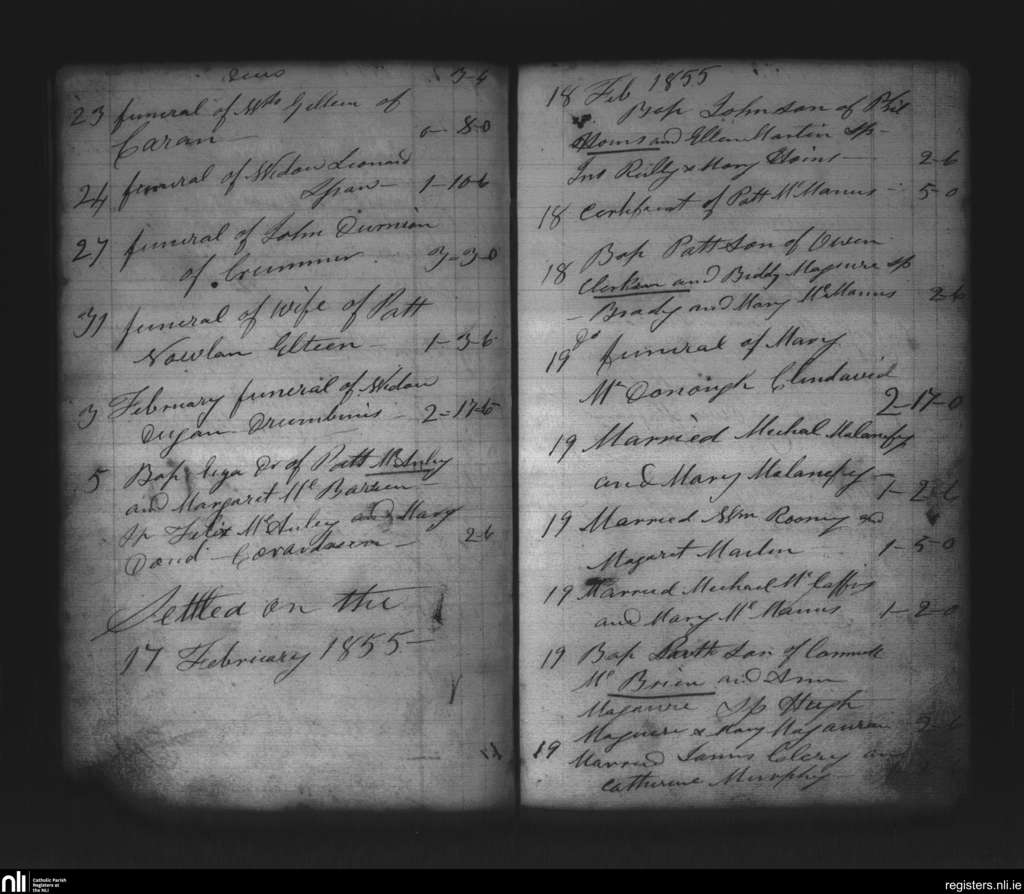 3-4
23 funeral of Wto Gilleen of
Caran 0-8-0
24 funeral of Widow Leonard
1-10-6
27 funeral of John Durnian
of Crummer 3-3-0
31 funeral of wife of Patt
Nowlan Elteen 1-3-6
3 February funeral of Widow
Dugan Drumbinis 2-17-6
5 Bap Liza Dr of Patt McAuley
and Margaret Mc Barron
Sp Felix McAuley and Mary
2-6
Settled on the
17 February 1855
18 Feb 1855
Bap John son of Phil
Hoins and Ellen Martin Sp
Jns Reilly & Mary Hoins 2-6
18 of Patt McManus 5-0
18 Bap Patt Son of Owen
Clerkin and Biddy Maguire Sp
Brady and Mary McManus 2-6
19 do funeral of Mary
Mc Donough Clindavid
2-17-0
19 Married Michal Malanefy
and Mary Malanefy
1-2-6
19 Married Wm Rooney and
Magaret Martin 1-5-0
19 Married Michael McCaffry
and Mary McManus 1-2-0
19 Bap Barth Son of
Mc Brien and Ann
Magawre Sp Hugh
Maguire & Mary Magauran 2-6
19 Married James Clery and
Catherine Murphy
nli
Catholic Parish
Registers at
the NLI
registers.nli.ie